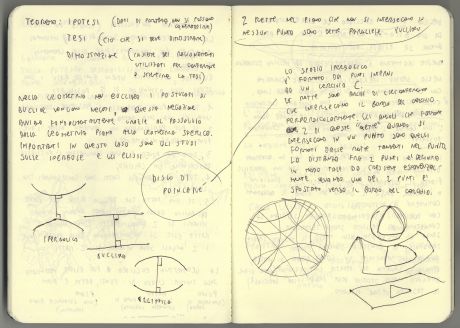 TEOREMA: IPOTESI (DATI DI PARTENZA, NON SI POSSONO
CONTRADDIRE)
TESI (CIÒ CHE SI DEVE DIMOSTRARE)
DIMOSTRAZIONE (INSIEME DEI RAGIONAMENTI
UTILIZZATI PER CONFERMARE
O SMENTIRE LA TESI)
NELLA GEOMETRIA NON EUCLIDEA I POSTULATI DI
EUCLIDE VENGONO NEGATI QUESTA NEGAZIONE
DALLA GEOMETRIA PIANA ALLA GEOMETRIA SFERICA.
IMPORTANTI IN QUESTO CASO SONO GLI STUDI
SULLE IPERBOLE E GLI ELISSI
DISCO DI
POINCARÉ
IPERBOLICO
EUCLIDEO
ELLITTICO
2 RETTE NEL PIANO CHE NON SI INTERSECANO IN
NESSUN PUNTO SONO DETTE PARALLELE EUCLIDEE
LO SPAZIO IPERBOLICO
È FORMATO DAI PUNTI INTERNI
AD UN CERCHIO C.
LE RETTE SONO ARCHI DI CIRCONFERENZA
CHE INTERSECANO IL BORDO DEL CERCHIO
PERPENDICOLARMENTE GLI ANGOLI CHE FORMANO
2 DI QUESTE "RETTE" QUANDO SI
INTERSECANO IN UN PUNTO SONO QUELLI
FORMATI DALLE RETTE TANGENTI NEL PUNTO
LA DISTANZA FRA 2 PUNTI È DEFINITA
IN MODO TALE DA CRESCERE ESPONENZIAL
MENTE QUANDO UNO DEI 2 PUNTI È
SPOSTATO VERSO IL BORDO DEL CERCHIO.